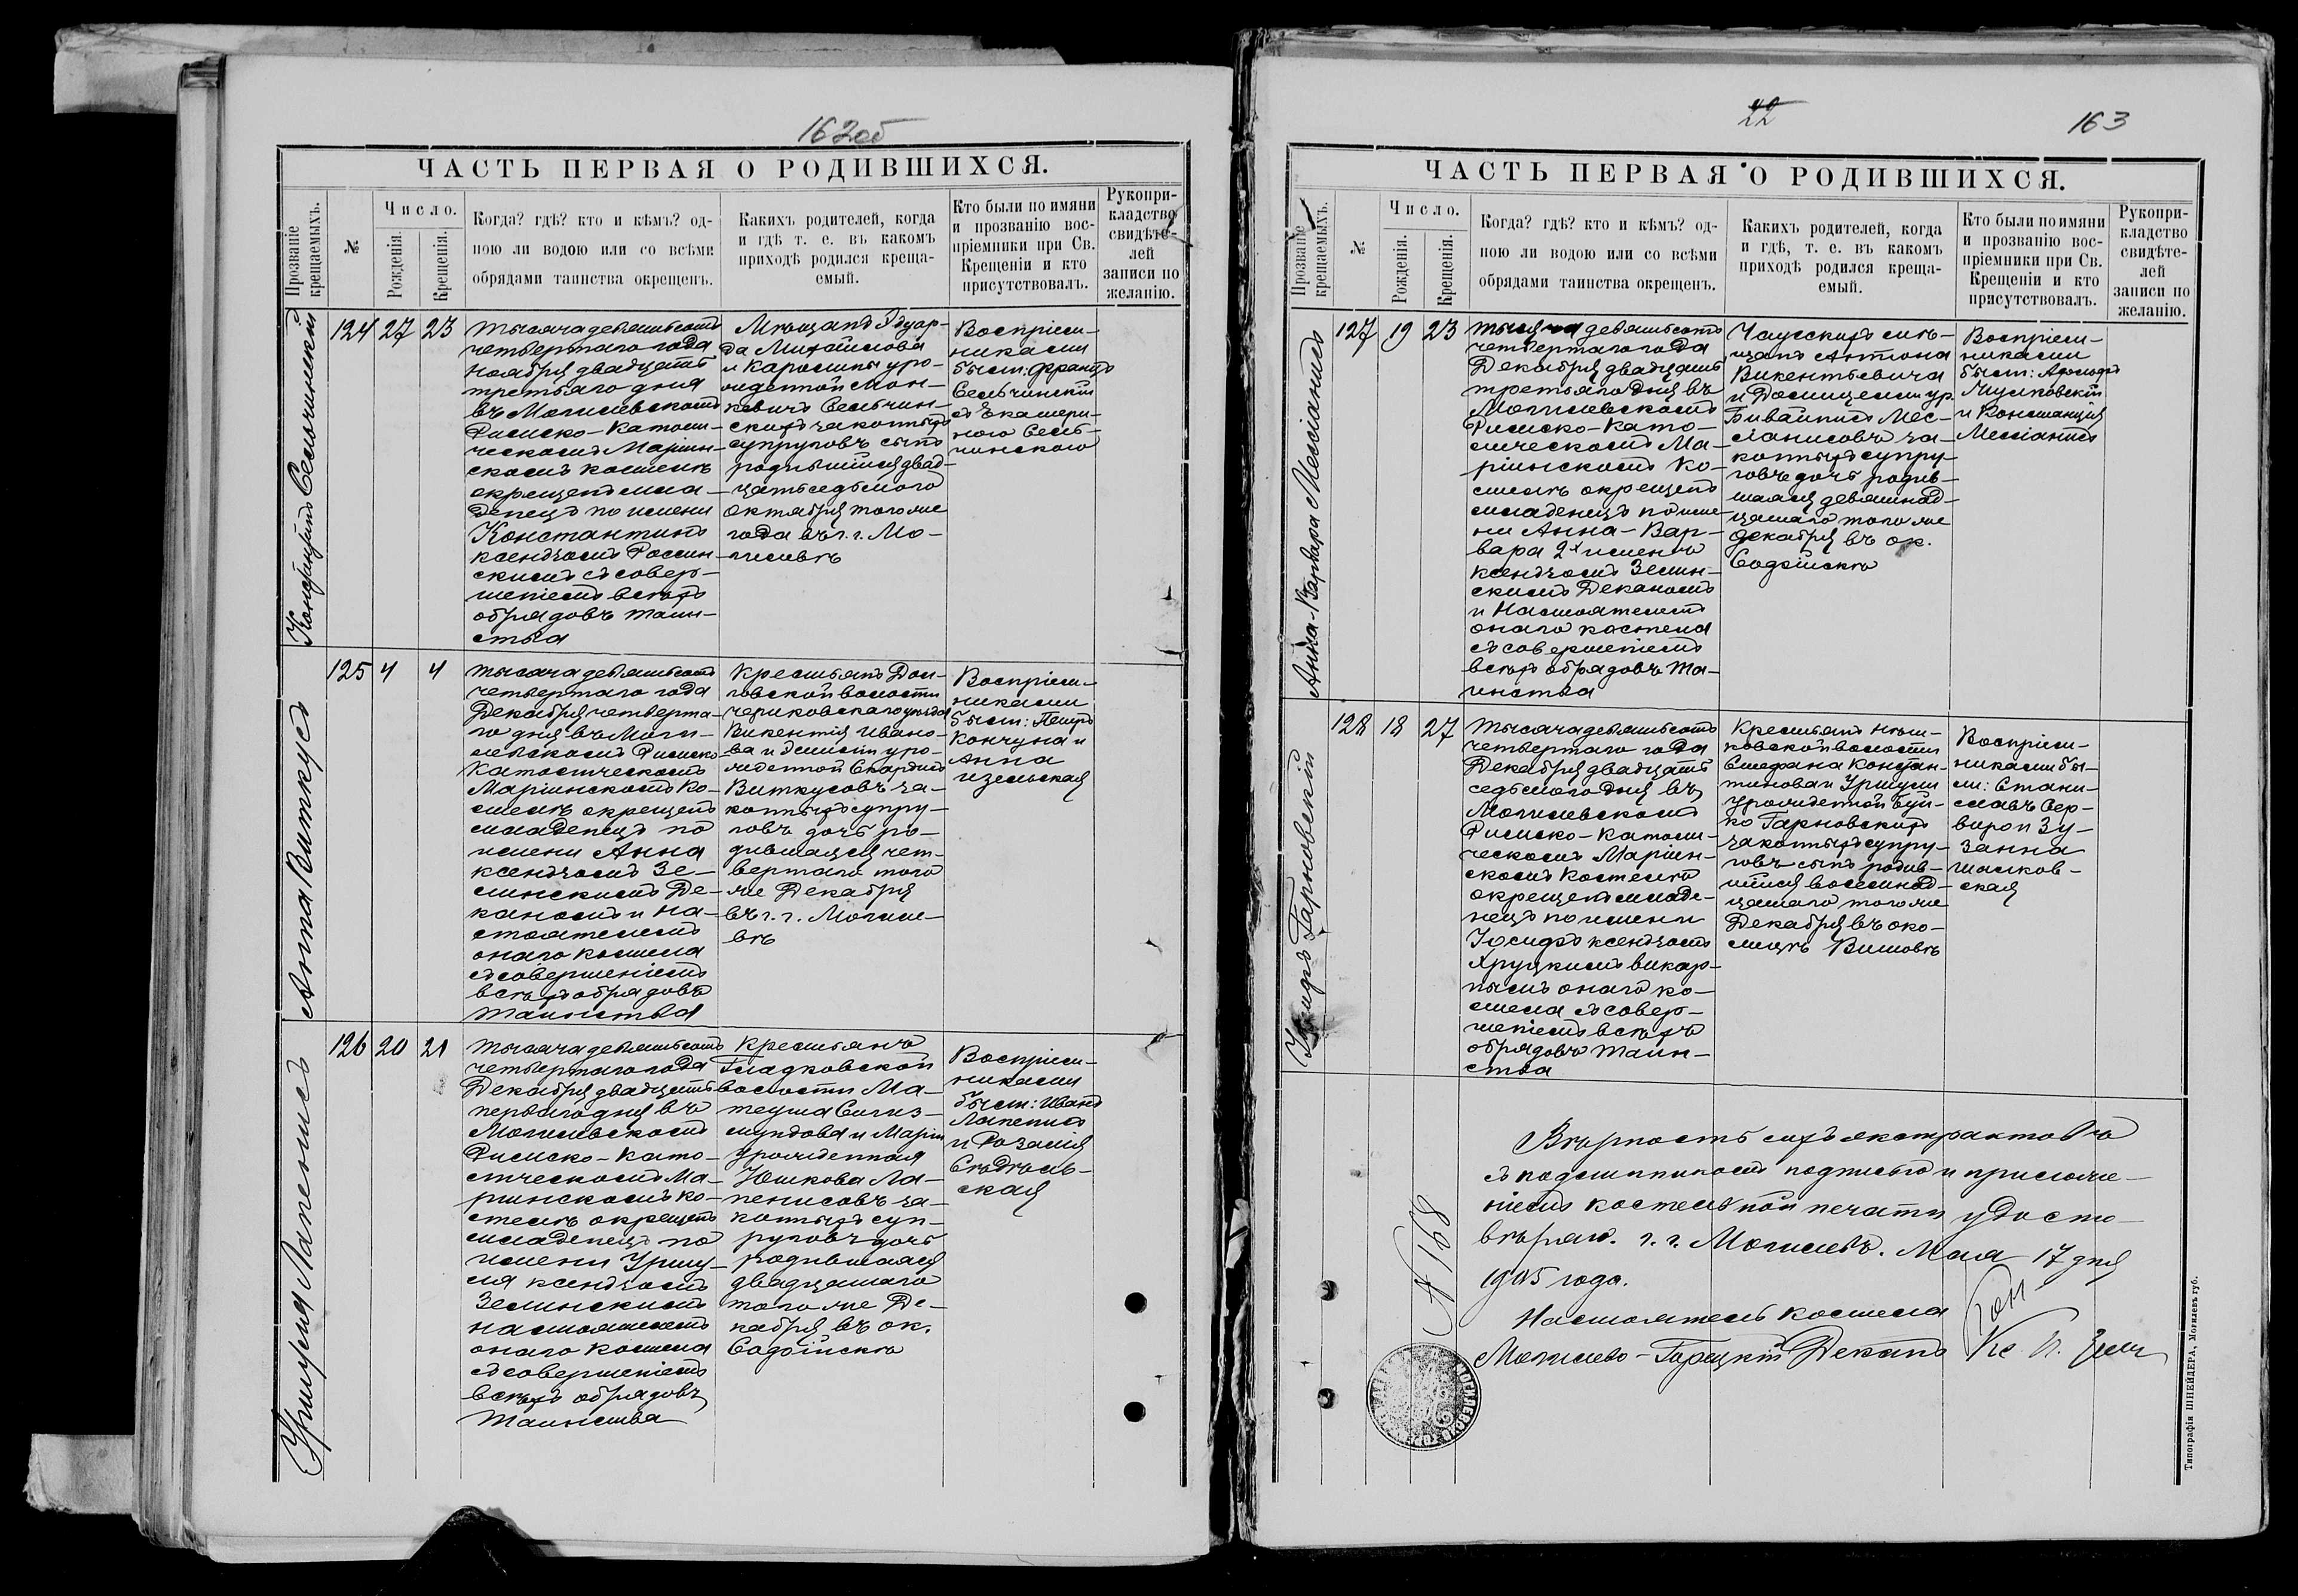 162об
ЧАСТЬ ПЕРВАЯ О РОДИВШИХСЯ.
Прозваніе крещаемыхъ.
№
Число.
Рожденія.
Крещенія.
Когда? гдѣ? кто и кѣмъ? од-
ною ли водою или со всѣми
обрядами таинства окрещенъ.
Какихъ родителей, когда
и гдѣ т. е. въ какомъ
приходѣ родился креща-
емый.
Кто были по имяни
и прозванію вос-
пріемники при Св.
Крещеніи и кто
присутствовалъ.
Рукопри-
кладство
свидѣте-
лей
записи по
желанію.
124 27 23
тысяча девятьсотъ
четвертаго года
ноября двадцать
третьяго дня
въ Могилевскомъ
Римско-Католи-
ческомъ Маріин-
скомъ костелѣ
окрещенъ мла-
денецъ по имени
Константинъ
ксендзомъ
съ совер-
шеніемъ всѣхъ
обрядовъ таин-
ства
Мѣщанъ Эдуар-
да Михайлова
и Каролины уро-
жденной Мон-
кевичъ
скихъ законныхъ
супруговъ сынъ
родившійся двад-
цать седьмого
Октября того же
года въ г. г. Мо-
гилевѣ
Воспріем-
никами
были: Францъ
съ Екатери-
ною
Анна Виткусъ
125 4 4
тысяча девятьсотъ
четвертаго года
Декабря четверта-
го дня въ Моги-
левскомъ Римско
Католическомъ
Маріинскомъ ко-
стелѣ окрещенъ
младенецъ по
имени Анна
ксендзомъ Зе-
линскимъ Де-
каномъ и На-
стоятелемъ
онаго костела
съ совершеніемъ
всѣхъ обрядовъ
таинства
Крестьянъ Дол-
говской волости
Чериковскаго уѣзда
Викентія Ивано-
ва и уро-
жденной
Виткусовъ за-
конныхъ супру-
говъ дочь ро-
дившаяся чет-
вертаго того
же Декабря
въ г. г. Могиле-
вѣ
Воспріем-
никами
были: Петръ
Кончуна и
Анна
Уршуля Лапенисъ
126 20 21
тысяча девятьсотъ
четвертаго года
Декабря двадцать
перваго дня въ
Могилевскомъ
Римско-Като-
лическомъ Ма-
ріинскомъ ко-
стелѣ окрещенъ
младенецъ по
имени Уршу-
ля ксендзомъ
Зелинскимъ
настоятелемъ
онаго костела
съ совершеніемъ
всѣхъ обрядовъ
таинства
Крестьянъ
Гладковской
волости Ма-
теуша Сигиз-
мундова и Маріи
урожденная
Юшкова Ла-
пенисовъ за-
конныхъ суп-
руговъ дочь
родившаяся
двадцатаго
того же Де-
кабря въ ок.
Воспріем-
никами
были: Иванъ
Лапенисъ
и Розалія
22
163
ЧАСТЬ ПЕРВАЯ О РОДИВШИХСЯ.
Прозваніе крещаемыхъ.
№
Число.
Рожденія.
Крещенія.
Когда? гдѣ? кто и кѣмъ? од-
ною ли водою или со всѣми
обрядами таинства окрещенъ.
Какихъ родителей, когда
и гдѣ, т. е. въ какомъ
приходѣ родился креща-
емый.
Кто были по имяни
и прозванію вос-
пріемники при Св.
Крещеніи и кто
присутствовалъ.
Рукопри-
кладство
свидѣте-
лей
записи по
желанію.
Анна-Варвара
127 19 23
тысяча девятьсотъ
четвертаго года
Декабря двадцать
третьяго дня въ
Могилевскомъ
Римско-Като-
лическомъ Ма-
ріинскомъ ко-
стелѣ окрещенъ
младенецъ по име
ни Анна-Вар-
вара 2х именъ
ксендзомъ Зелин-
скимъ Деканомъ
и Настоятелемъ
онаго костела
съ совершеніемъ
всѣхъ обрядовъ та-
инства
Чаусскихъ мѣ-
щанъ Антона
Викентьевича
и ур.
законныхъ супру-
говъ дочь родив-
шаяся девятнад-
цатаго того же
Декабря въ ок.
Воспріем-
никами
были:
и Констанція
Іосифъ Гарновскій
128 18 27
Тысяча девятьсотъ
четвертаго года
Декабря двадцать
седьмого дня въ
Могилевскомъ
Римско-Католи-
ческомъ Маріин-
скомъ костелѣ
окрещенъ младе-
нецъ по имени
Іосифъ ксендзомъ
Хруцкимъ викар-
нымъ онаго ко-
стела съ совер-
шеніемъ всѣхъ
обрядовъ таин-
ства
Крестьянъ
волости
Стефана Констан-
тинова и Уршули
урожденной Буй-
ко Гарновскихъ
законныхъ супру-
говъ сынъ родив-
шійся восемнад-
цатаго того же
Декабря въ око-
лицѣ
Воспріем-
никами бы-
ли: Стани-
славъ
и Зу-
занна
№ 168
Вѣрность сихъ экстрактовъ
съ подлинникомъ подписью и приложе-
ніемъ костельной печати удосто-
вѣряю. г. г. Могилевъ. Мая 17 дня
1905 года.
Настоятель костела
Могилево-Горецкій Деканъ
Типографія ШНЕЙДЕРА, Могилевъ губ.